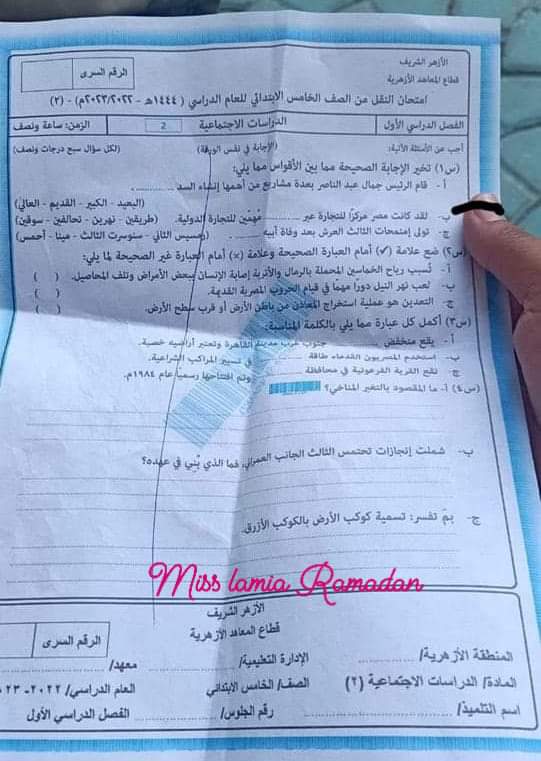 الأزهر الشريف
قطاع المعاهد الأزهرية
الرقم السرى
امتحان النقل من الصف الخامس الابتدائي للعام الدراسي ( ١٤٤٤هـ - ٢٠٢٣/٢٠٢٢م) - (٢)
الفصل الدراسي الأول
الدراسات الاجتماعية 2
الزمن: ساعة ونصف
أجب عن الأسئلة الآتية:
(الإجابة في نفس الورقة)
(لكل سؤال سبع درجات ونصف)
(س١) تخير الإجابة الصحيحة مما بين الأقواس مما يلي:
أ - قام الرئيس جمال عبد الناصر بعدة مشاريع من أهمها إنشاء السد ............
(البعيد - الكبير - القديم - العالي)
ب- لقد كانت مصر مركزًا للتجارة عبر ............ مهمين للتجارة الدولية.
(طريقين - نهرين - تحالفين - سوقين)
ج- تولى إمنمحات الثالث العرش بعد وفاة أبيه ............
(رمسيس الثاني - سنوسرت الثالث - مينا - أحمس)
(س٢) ضع علامة (✓) أمام العبارة الصحيحة وعلامة (×) أمام العبارة غير الصحيحة لما يلي:
أ - تُسبب رياح الخماسين المحملة بالرمال والأتربة إصابة الإنسان ببعض الأمراض وتلف المحاصيل. ( )
ب- لعب نهر النيل دورًا مهمًا في قيام الحروب المصرية القديمة. ( )
ج- التعدين هو عملية استخراج المعادن من باطن الأرض أو قرب سطح الأرض. ( )
(س٣) أكمل كل عبارة مما يلي بالكلمة المناسبة:
أ - يقع منخفض ............ جنوب غرب مدينة القاهرة وتعتبر أراضيه خصبة.
ب- استخدم المصريون القدماء طاقة ............ في تسيير المراكب الشراعية.
ج- تقع القرية الفرعونية في محافظة ............ وتم افتتاحها رسمياً عام ١٩٨٤م.
(س٤) أ- ما المقصود بالتغير المناخي؟
ب- شملت إنجازات تحتمس الثالث الجانب العمراني، فما الذي بُنِي في عهده؟
ج- بمَ تفسر: تسمية كوكب الأرض بالكوكب الأزرق.
Miss lamia Ramadan
الأزهر الشريف
قطاع المعاهد الأزهرية
الرقم السرى
المنطقة الأزهرية/
الإدارة التعليمية/
معهد/
المادة/ الدراسات الاجتماعية (٢)
الصف/ الخامس الابتدائي
العام الدراسي/ ٢٠٢٢-
اسم التلميذ/
رقم الجلوس/
الفصل الدراسي الأول